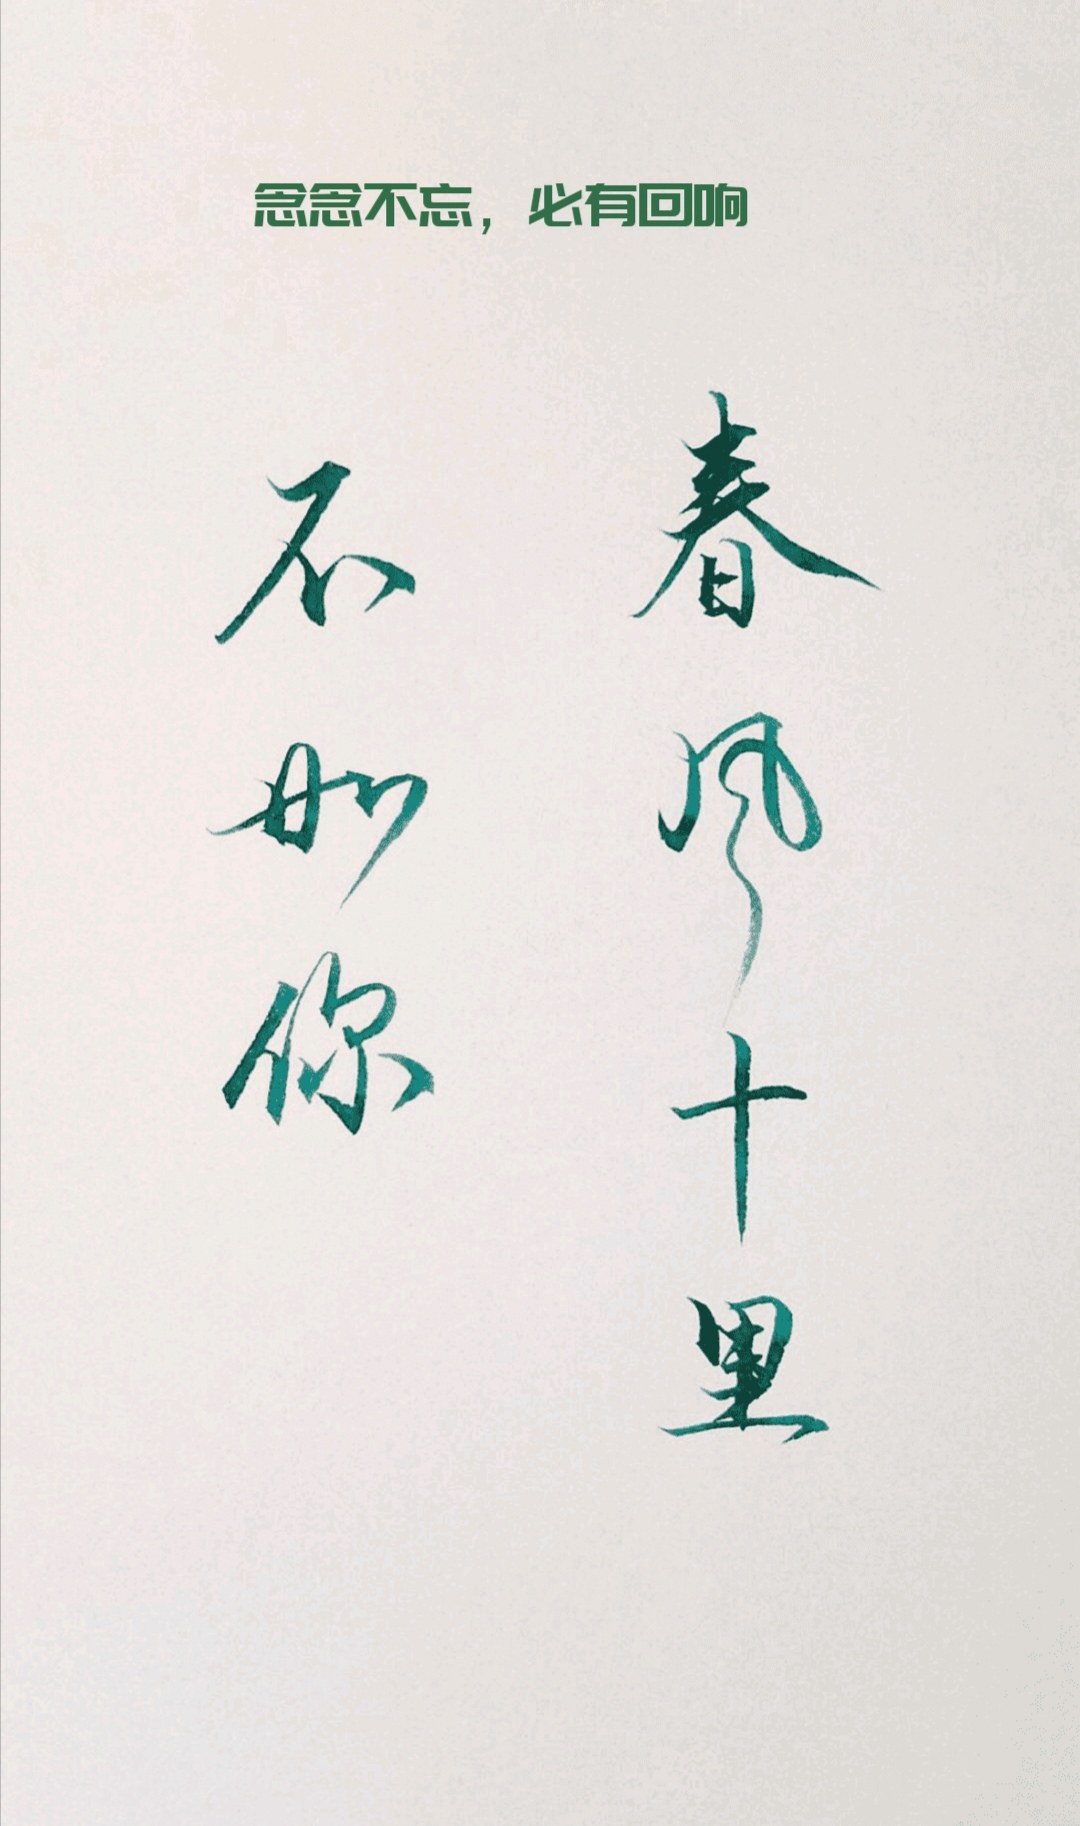 念念不忘，必有回响
春风十里
不如你